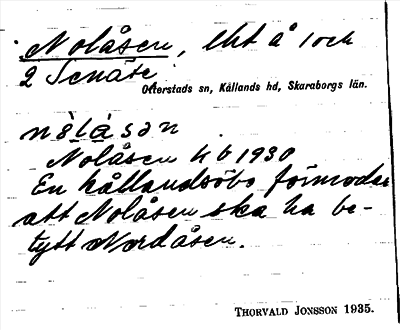 Nolåsen, lht å 1 och
2 Senäte
Otterstads sn, Kållands hd, Skaraborgs län.
nɷ̀låsən
Nolåsen hb 1930
En kållandsöbo förmodar
att Nolåsen ska ha be-
tytt Nordåsen.
THORVALD JONSSON 1935.